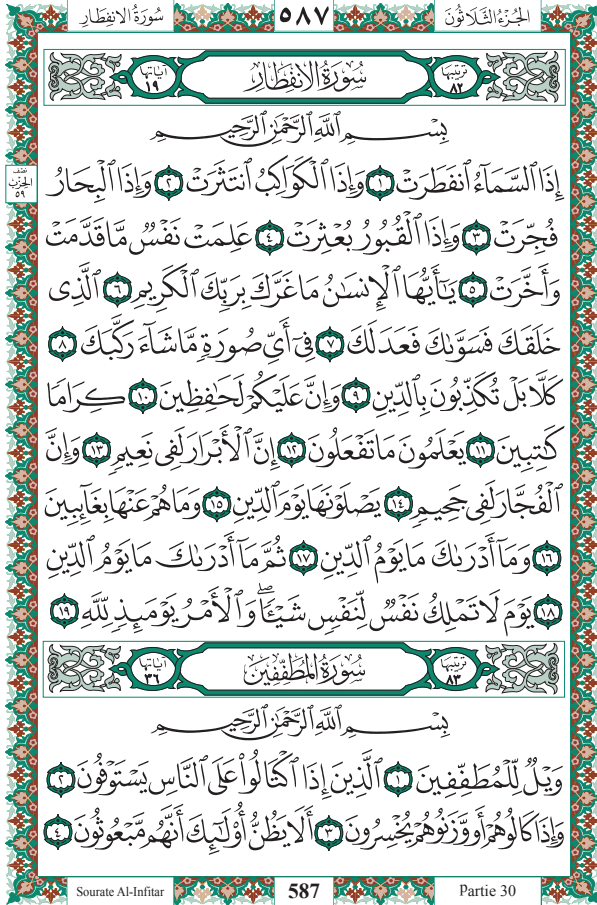 الجُزْءُ الثَّلَاثُونَ
٥٨٧
سُورَةُ الِانفِطَارِ
تَرتِيبُهَا ٨٢
سُورَةُ الِانفِطَارِ
آيَاتُهَا ١٩
بِسْمِ ٱللَّهِ ٱلرَّحْمَٰنِ ٱلرَّحِيمِ
إِذَا ٱلسَّمَآءُ ٱنفَطَرَتْ ١ وَإِذَا ٱلْكَوَاكِبُ ٱنتَثَرَتْ ٢ وَإِذَا ٱلْبِحَارُ
نصف الحزب ٥٩
فُجِّرَتْ ٣ وَإِذَا ٱلْقُبُورُ بُعْثِرَتْ ٤ عَلِمَتْ نَفْسٌ مَّا قَدَّمَتْ
وَأَخَّرَتْ ٥ يَٰٓأَيُّهَا ٱلْإِنسَٰنُ مَا غَرَّكَ بِرَبِّكَ ٱلْكَرِيمِ ٦ ٱلَّذِى
خَلَقَكَ فَسَوَّىٰكَ فَعَدَلَكَ ٧ فِىٓ أَىِّ صُورَةٍ مَّا شَآءَ رَكَّبَكَ ٨
كَلَّا بَلْ تُكَذِّبُونَ بِٱلدِّينِ ٩ وَإِنَّ عَلَيْكُمْ لَحَٰفِظِينَ ١٠ كِرَامًا
كَٰتِبِينَ ١١ يَعْلَمُونَ مَا تَفْعَلُونَ ١٢ إِنَّ ٱلْأَبْرَارَ لَفِى نَعِيمٍ ١٣ وَإِنَّ
ٱلْفُجَّارَ لَفِى جَحِيمٍ ١٤ يَصْلَوْنَهَا يَوْمَ ٱلدِّينِ ١٥ وَمَا هُمْ عَنْهَا بِغَآئِبِينَ
١٦ وَمَآ أَدْرَىٰكَ مَا يَوْمُ ٱلدِّينِ ١٧ ثُمَّ مَآ أَدْرَىٰكَ مَا يَوْمُ ٱلدِّينِ
١٨ يَوْمَ لَا تَمْلِكُ نَفْسٌ لِّنَفْسٍ شَيْـًٔا ۖ وَٱلْأَمْرُ يَوْمَئِذٍ لِّلَّهِ ١٩
تَرتِيبُهَا ٨٣
سُورَةُ المُطَفِّفِينَ
آيَاتُهَا ٣٦
بِسْمِ ٱللَّهِ ٱلرَّحْمَٰنِ ٱلرَّحِيمِ
وَيْلٌ لِّلْمُطَفِّفِينَ ١ ٱلَّذِينَ إِذَا ٱكْتَالُوا۟ عَلَى ٱلنَّاسِ يَسْتَوْفُونَ ٢
وَإِذَا كَالُوهُمْ أَو وَّزَنُوهُمْ يُخْسِرُونَ ٣ أَلَا يَظُنُّ أُو۟لَٰٓئِكَ أَنَّهُم مَّبْعُوثُونَ ٤
Sourate Al-Infitar
587
Partie 30